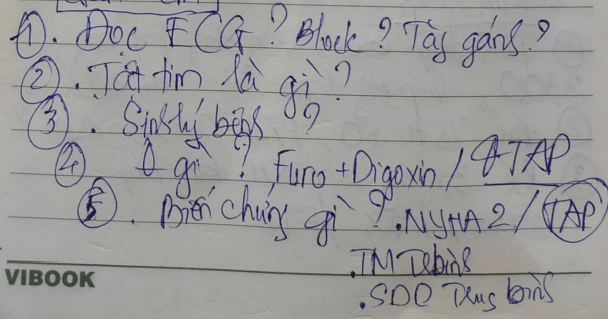 ①. Đọc ECG? Block? Tăg gánh?
②. Tật tim là gì?
③. Sinh lý bệnh?
④ θ gì? Furo + Digoxin / θ TAP
⑤. Biến chứng gì? . NYHA 2 / TAP
. TM
. SDD Trug bình
VIBOOK